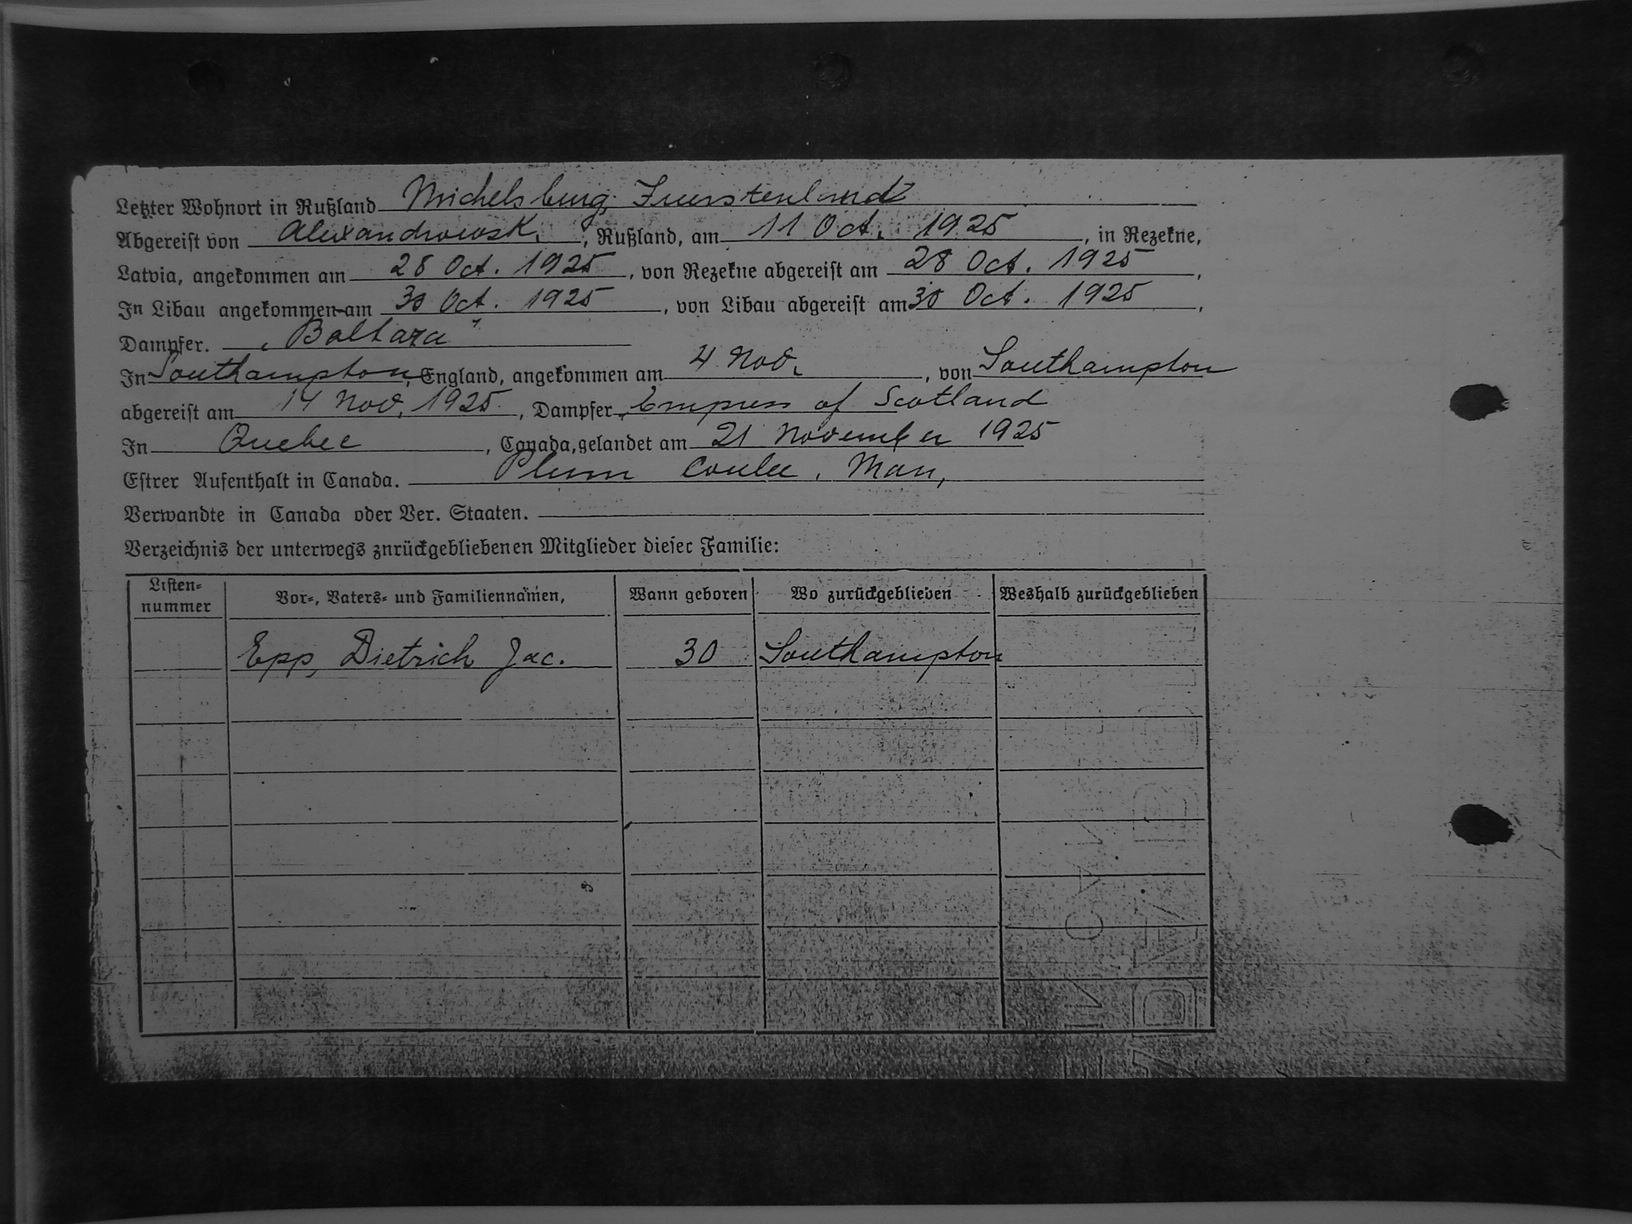 Letzter Wohnort in Rußland Michelsburg, Fuerstenland
Abgereist von Alexandrowosk, , Rußland, am 11 Oct. 1925, in Rezekne,
Latvia, angekommen am 28 Oct. 1925, von Rezekne abgereist am 28 Oct. 1925,
In Libau angekommen am 30 Oct. 1925, von Libau abgereist am 30 Oct. 1925,
Dampfer. "Baltara"
In Southampton, England, angekommen am 4 Nov., von Southampton
abgereist am 14 Nov. 1925, Dampfer „Empress of Scotland
In Quebec, Canada, gelandet am 21 November 1925
Estrer Aufenthalt in Canada. Plum Coulee, Man,
Verwandte in Canada oder Ver. Staaten.
Verzeichnis der unterwegs znrückgebliebenen Mitglieder diesec Familie:
Listen-nummer Vor-, Vaters- und Familiennamen, Wann geboren Wo zurückgeblieben Weshalb zurückgeblieben
Epp, Dietrich Jac. 30 Southampton